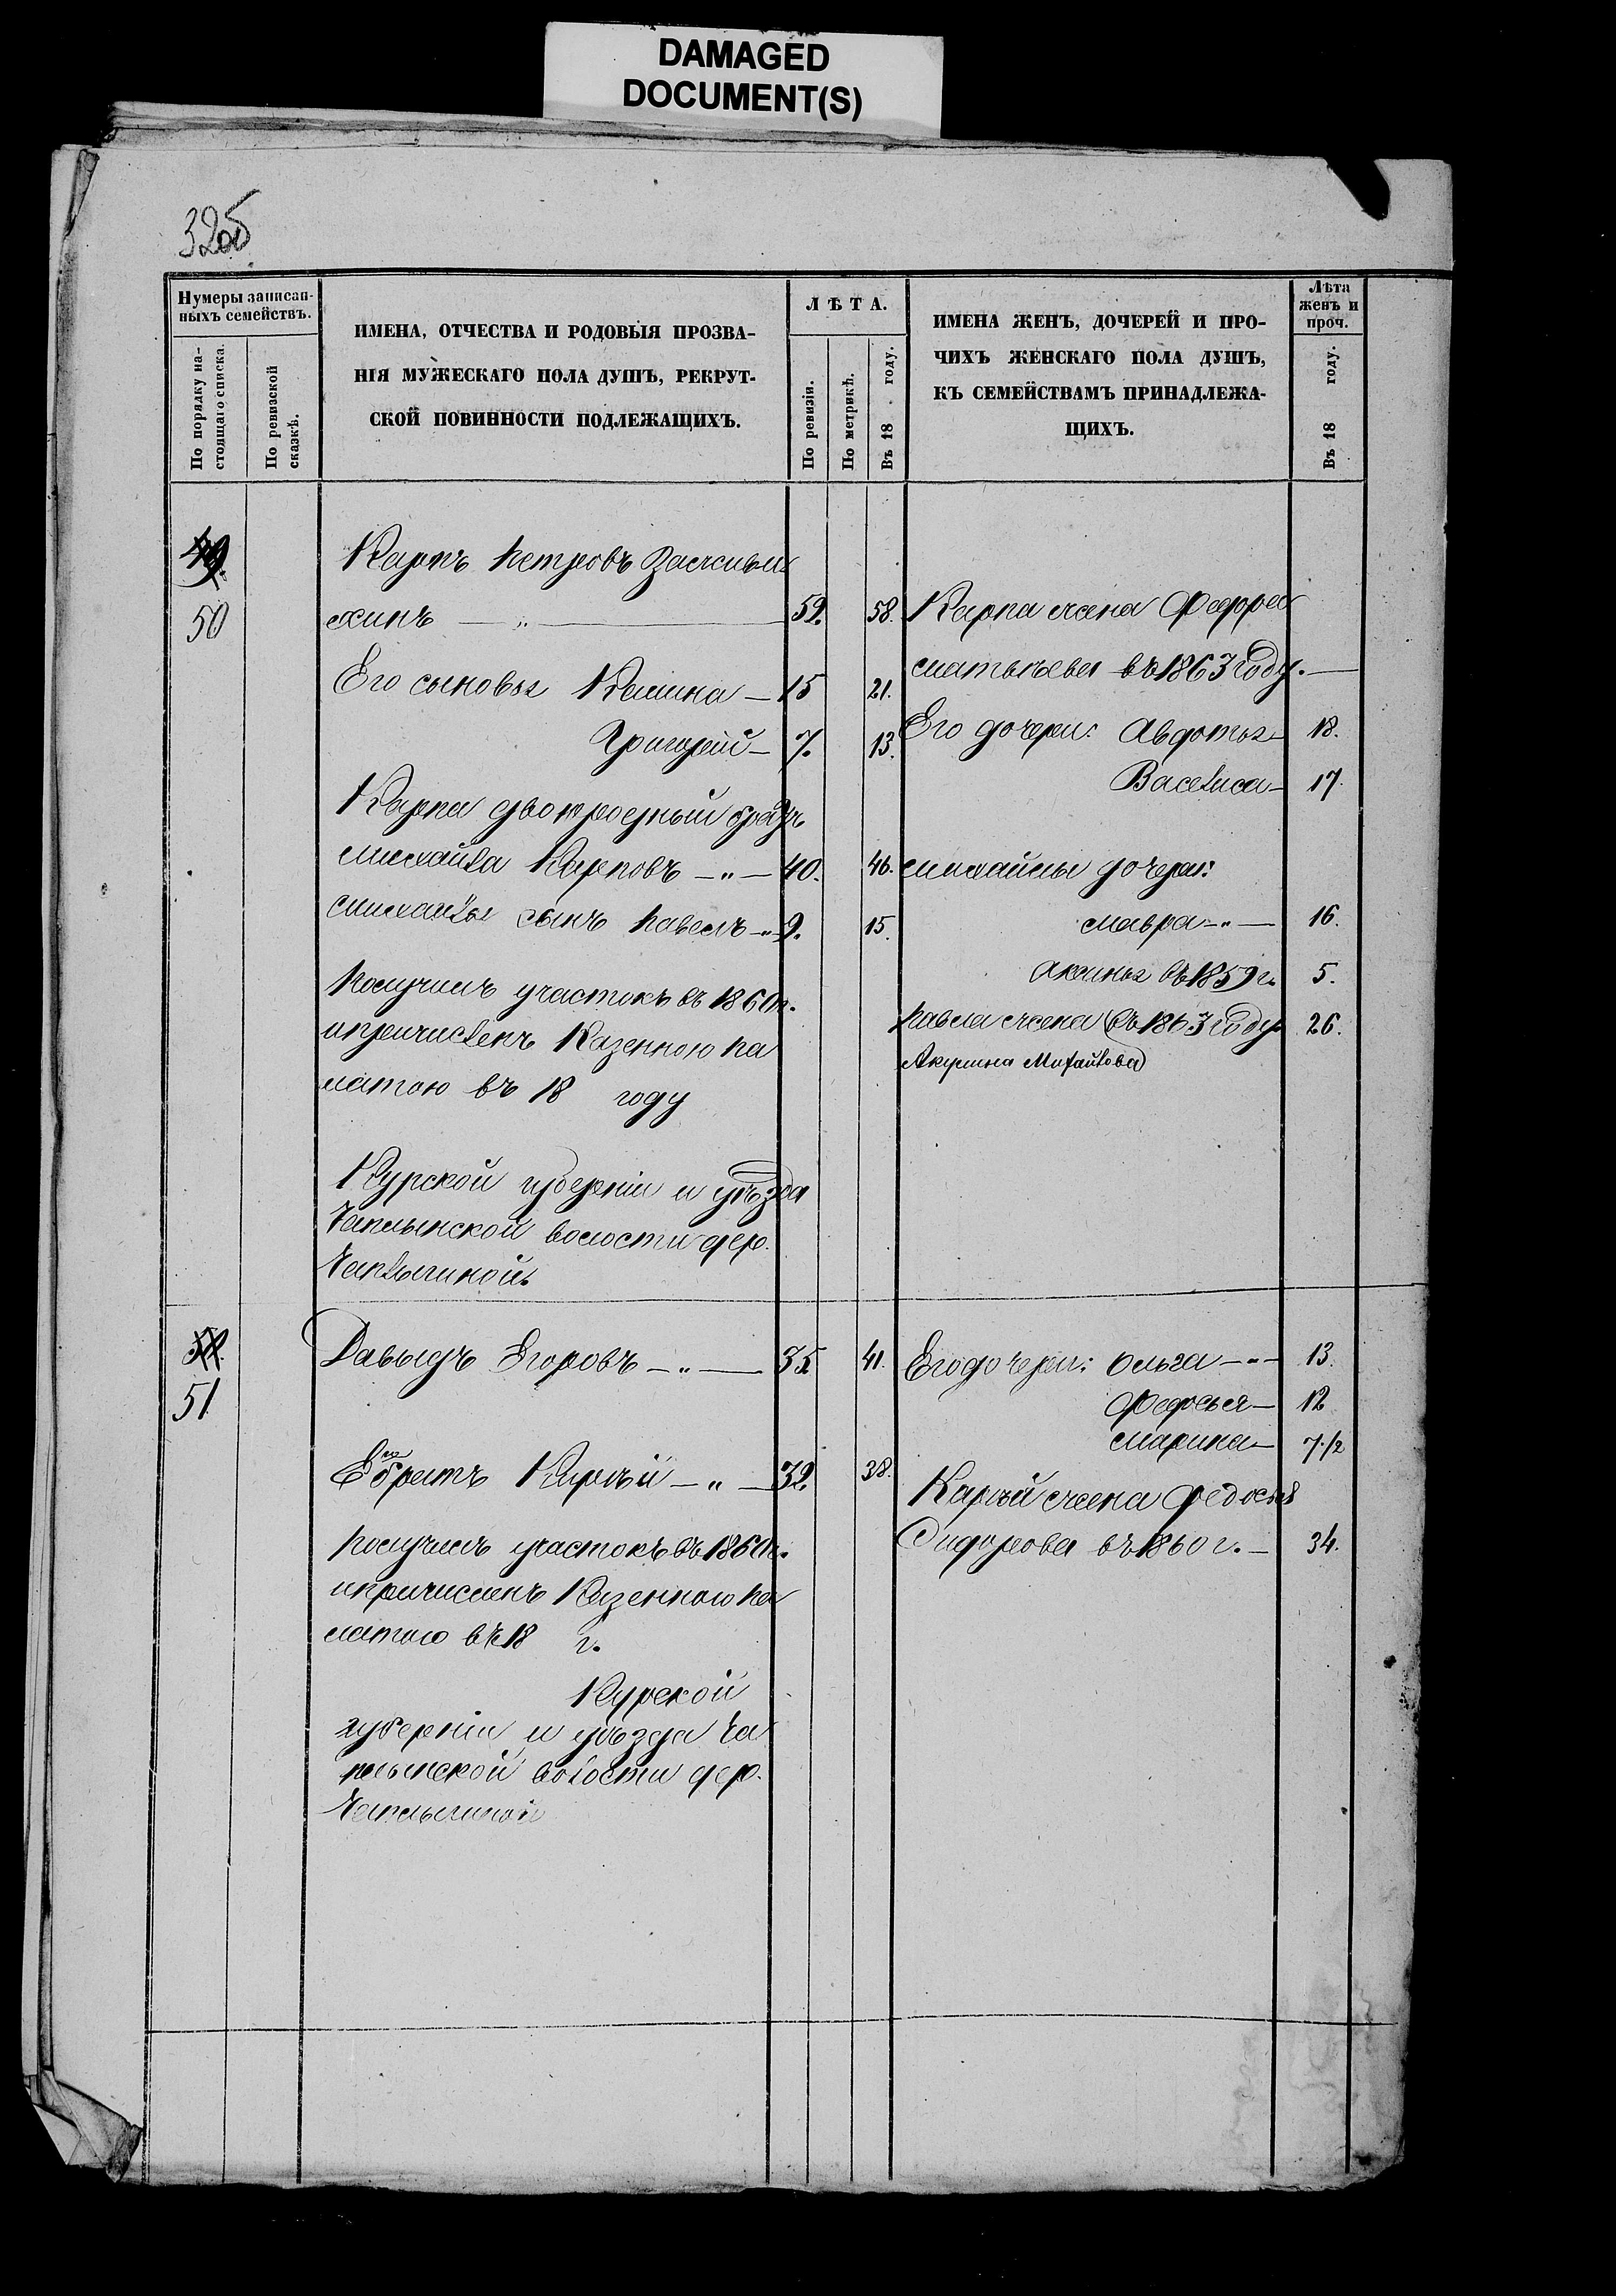 DAMAGED
DOCUMENT(S)
32об
Нумеры записан-
ныхъ семействъ.
По порядку на-
стоящаго списка.
По ревизской
сказкѣ.
ИМЕНА, ОТЧЕСТВА И РОДОВЫЯ ПРОЗВА-
НІЯ МУЖЕСКАГО ПОЛА ДУШЪ, РЕКРУТ-
СКОЙ ПОВИННОСТИ ПОДЛЕЖАЩИХЪ.
ЛѢТА.
По ревизіи.
По метрикѣ.
Въ 18 . году.
ИМЕНА ЖЕНЪ, ДОЧЕРЕЙ И ПРО-
ЧИХЪ ЖЕНСКАГО ПОЛА ДУШЪ,
КЪ СЕМЕЙСТВАМЪ ПРИНАДЛЕЖА-
ЩИХЪ.
Лѣта
женъ и
проч.
Въ 18 году.
49.
50
Карпъ Петровъ
хинъ — „ — 59. 58.
Его сыновья Калина — 15 21.
Григорей — 7. 13.
Карпа двоюродный братъ
Михайла Карповъ — „ — 40. 46.
Михайлы сынъ Павелъ — „ — 9. 15.
Получилъ участокъ въ 1860 г.
и причисленъ Казенною Па
латою въ 18 году
Курской губерніи и уѣзда
волости дер.
Чаплыгиной.
Карпа жена
въ 1863 году. —
Его дочери: Авдотья — 18.
Васелиса — 17.
Михайлы дочери:
Мавра — „ — 16.
Аксинья въ 1859 г. 5.
Павла жена (въ 1863 году 26.
Акулина Михайлова)
50.
51
Давыдъ Егоровъ — „ — 35 41.
Его братъ — „ — 32. 38.
Получилъ участокъ въ 1860 г.
и причисленъ Казенною Па
латою въ 18 г.
Курской
губерніи и уѣзда Ча
волости дер.
Чаплыгиной
Его дочери: Ольга — „ — 13.
Федосья — 12
Марина — 7 1/2
жена Федосья
Сидорова въ 1860 г. — 34.